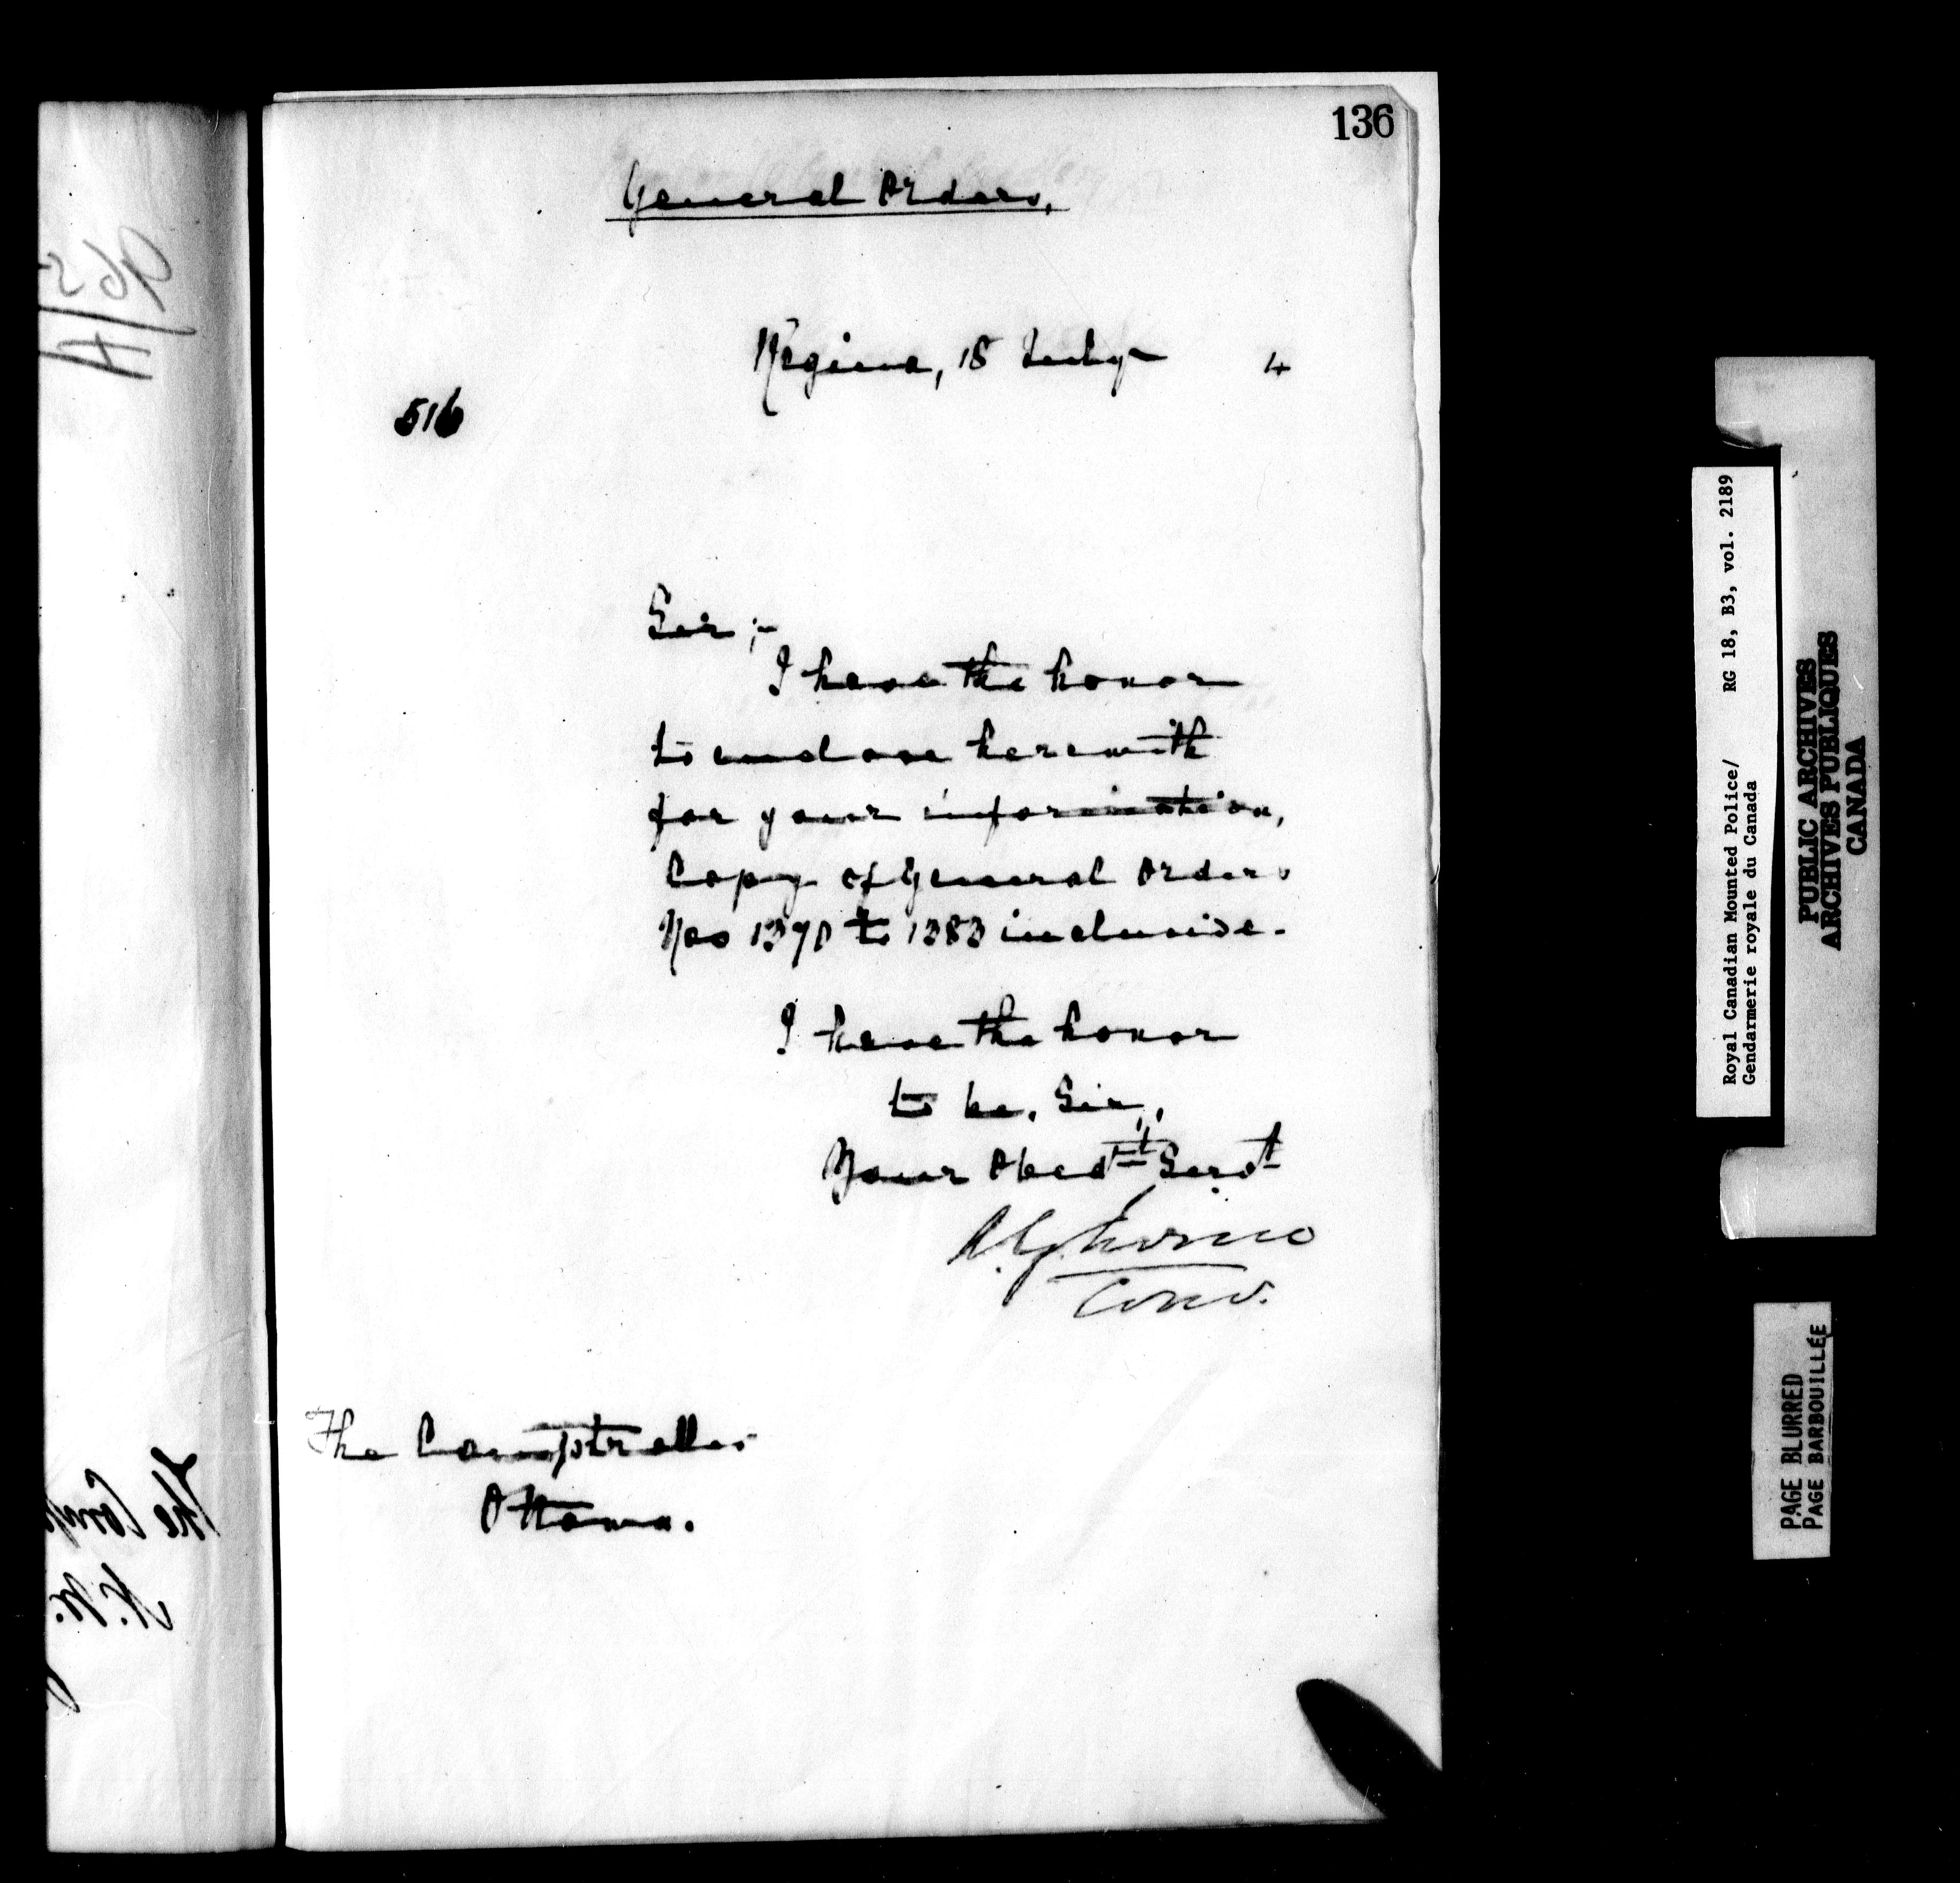 136
General Orders,
Regina, 18 July 4
516
Sir;-
I have the honor
to enclose herewith
for your information,
Copy of General Orders
Nos 1370 to 1383 inclusive.
I have the honor
to be. Sir,
Your Obedt Servt
Com.
The Comptroller
Ottawa.
The Comp
N.W.
Royal Canadian Mounted Police/ RG 18, B3, vol. 2189
Gendarmerie royale du Canada
PUBLIC ARCHIVES
ARCHIVES PUBLIQUES
CANADA
PAGE BLURRED
PAGE BARBOUILLÉE